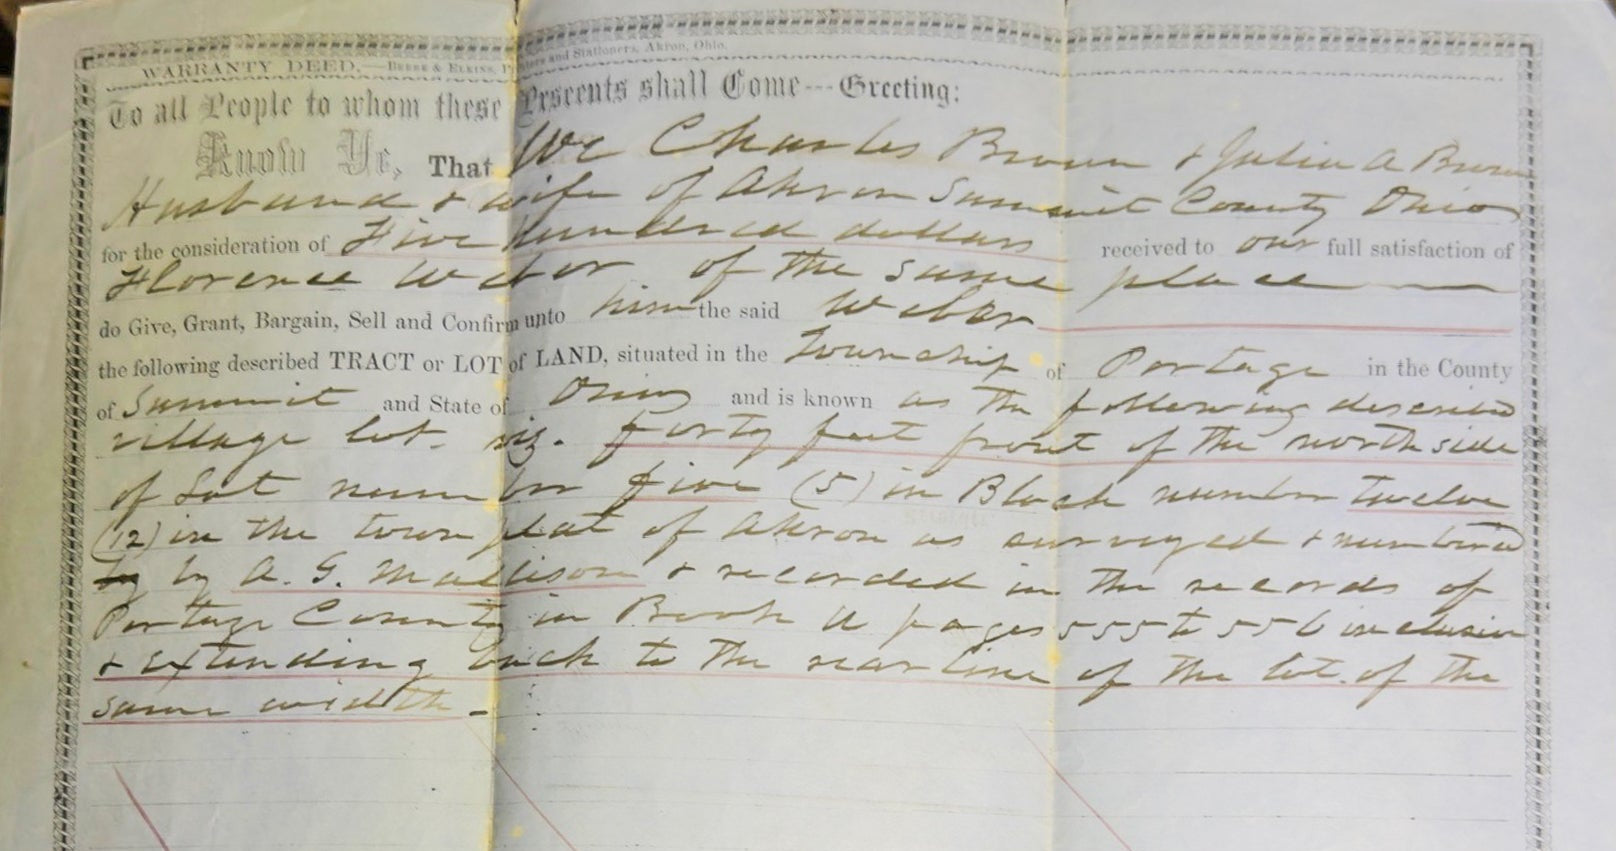 WARRANTY DEED.—BEEBE & ELKINS, Printers and Stationers, Akron, Ohio.
To all People to whom these Presents shall Come---Greeting:
Know Ye, That We Charles Brown & Julia A Brown
Husband & wife of Akron Summit County Ohio
for the consideration of Five hundred dollars received to our full satisfaction of
Florence Weber of the same place
do Give, Grant, Bargain, Sell and Confirm unto him the said Weber
the following described TRACT or LOT of LAND, situated in the Township of Portage in the County
of Summit and State of Ohio and is known as the following described
village lot. viz. forty feet front of the north side
of Lot number five (5) in Block number twelve
(12) in the town plat of Akron as surveyed & numbered
by by A. G. Mallison & recorded in the records of
Portage County in Book U pages 555 to 556 inclusive
& extending back to the rear line of the lot. of the
same width -